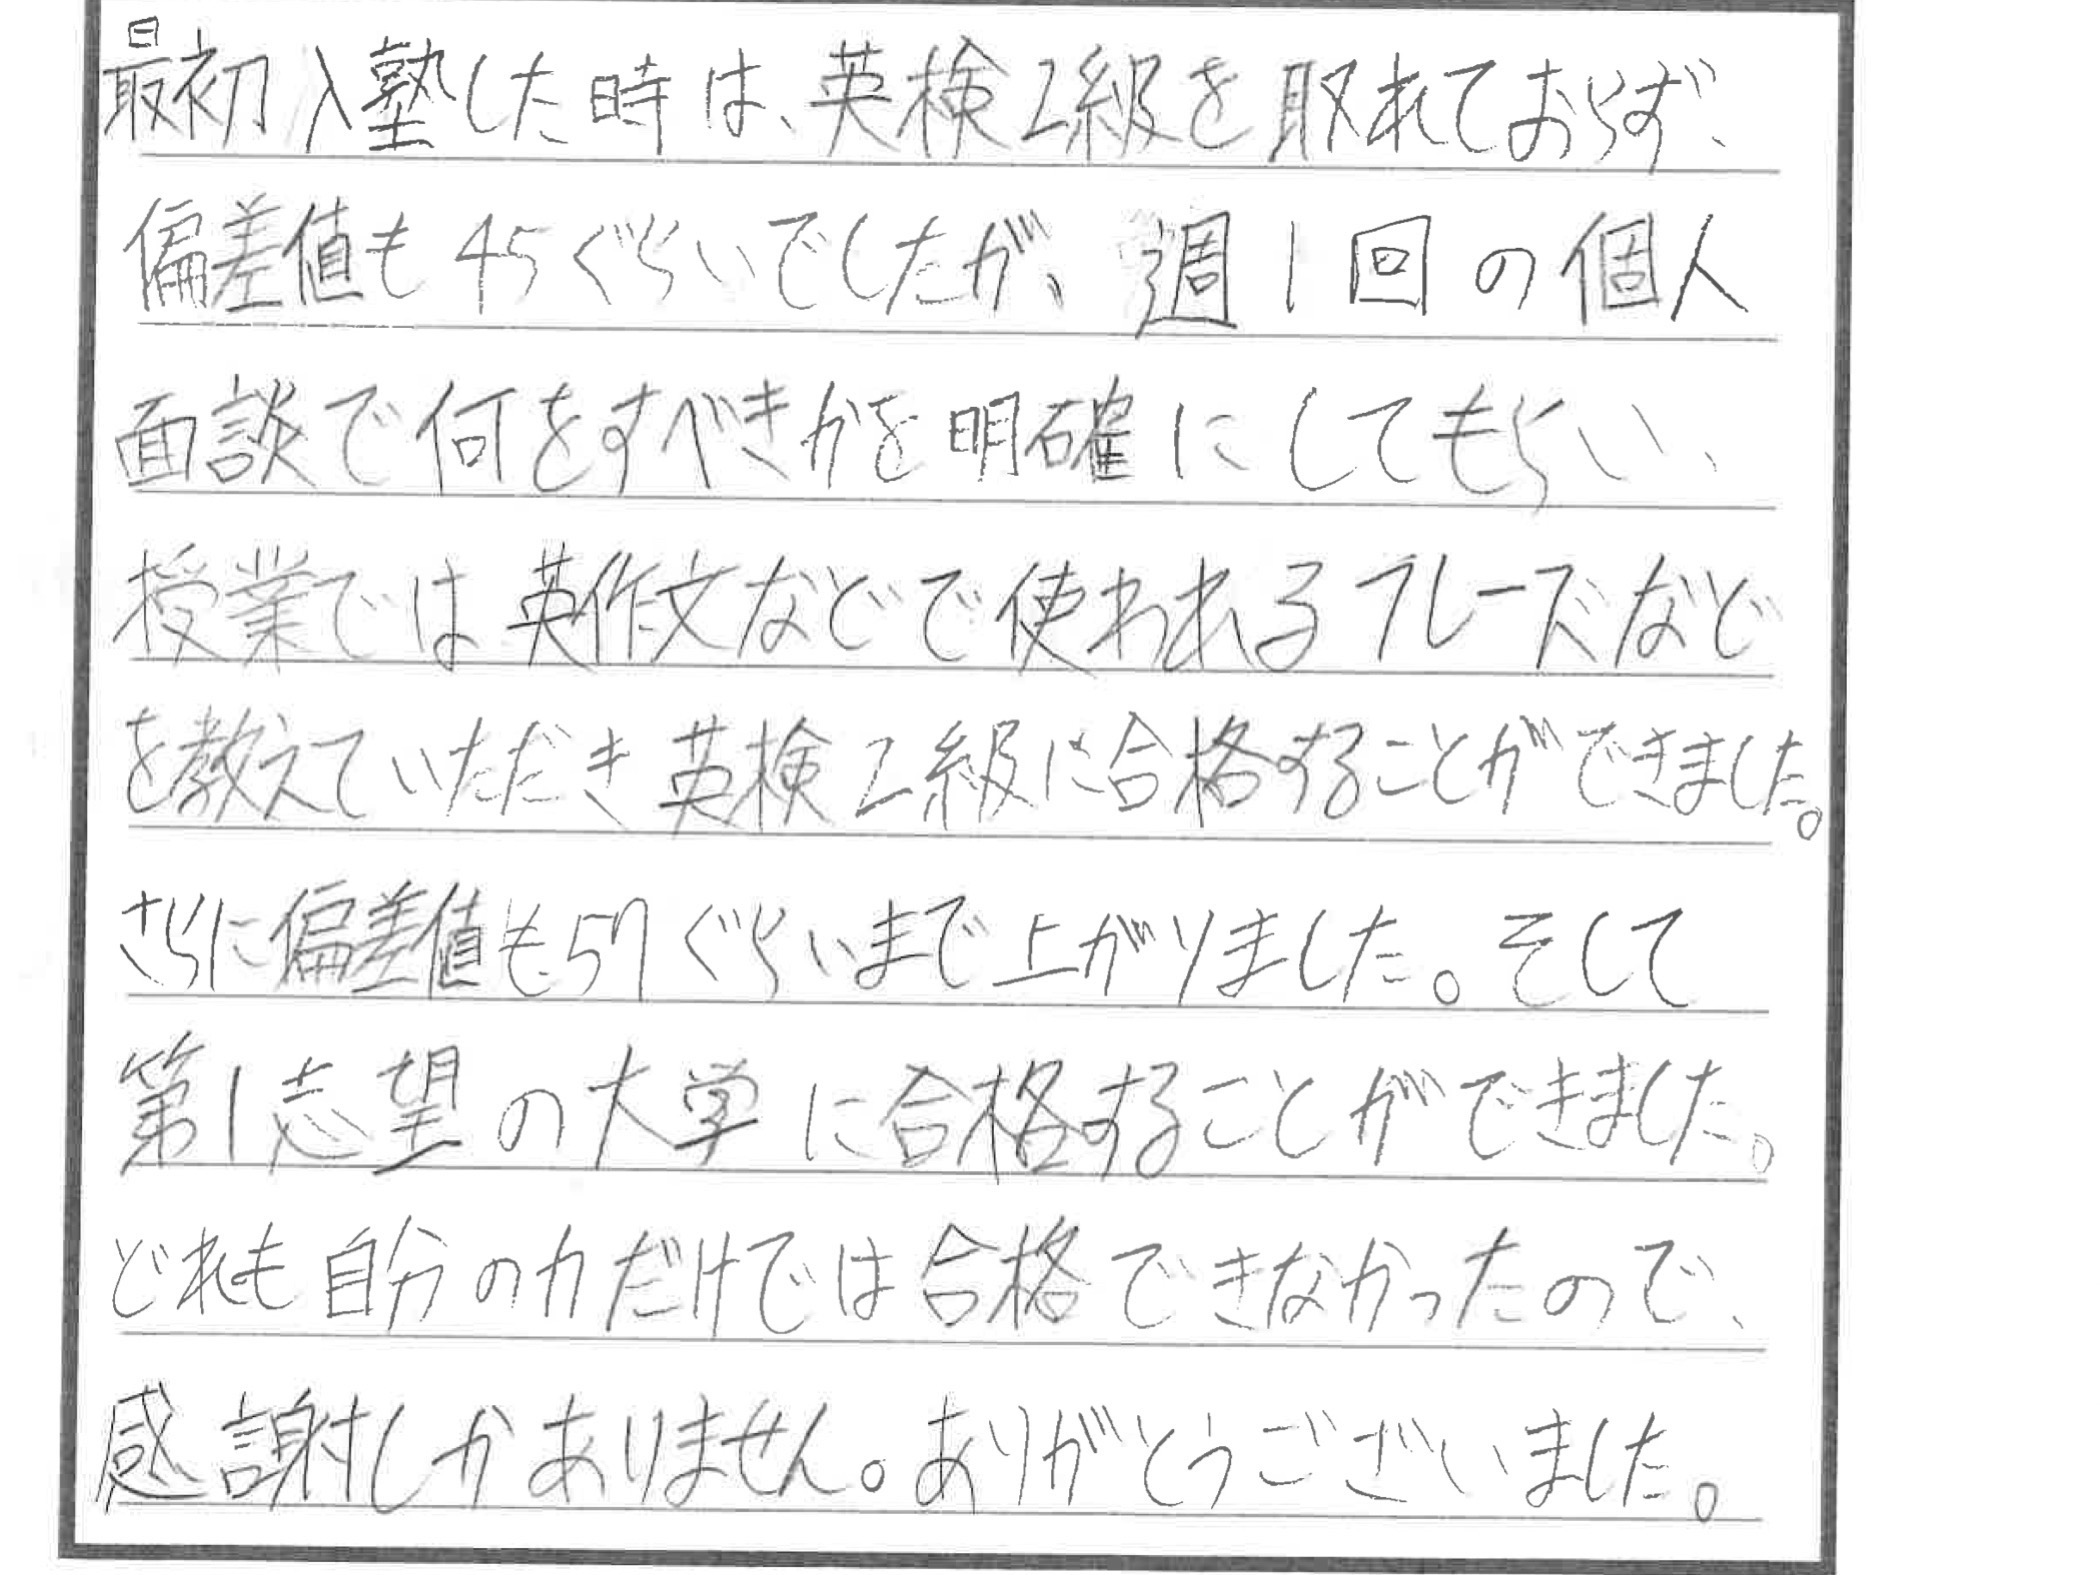 最初入塾した時は、英検2級を取れておらず、
偏差値も45ぐらいでしたが、週1回の個人
面談で何をすべきかを明確にしてもらい、
授業では英作文などで使われるフレーズなど
を教えていただき英検2級に合格することができました。
さらに偏差値も57ぐらいまで上がりました。そして
第1志望の大学に合格することができました。
どれも自分の力だけでは合格できなかったので、
感謝しかありません。ありがとうございました。